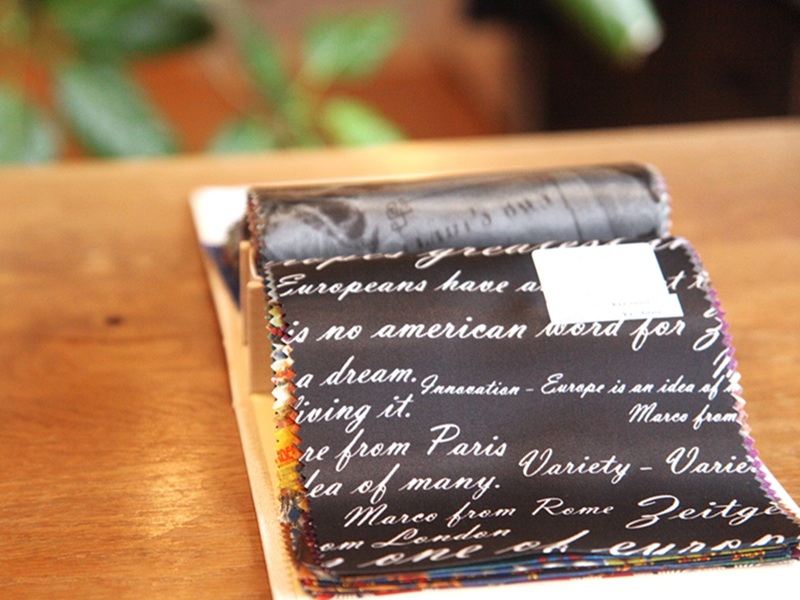 greatest
Europeans have
is no american word for
a dream.
Innovation - Europe is an idea of
living it.
Marco from
re from Paris
Variety - Varie
dea of many.
Marco from Rome
Zeitge
om London
one of europ